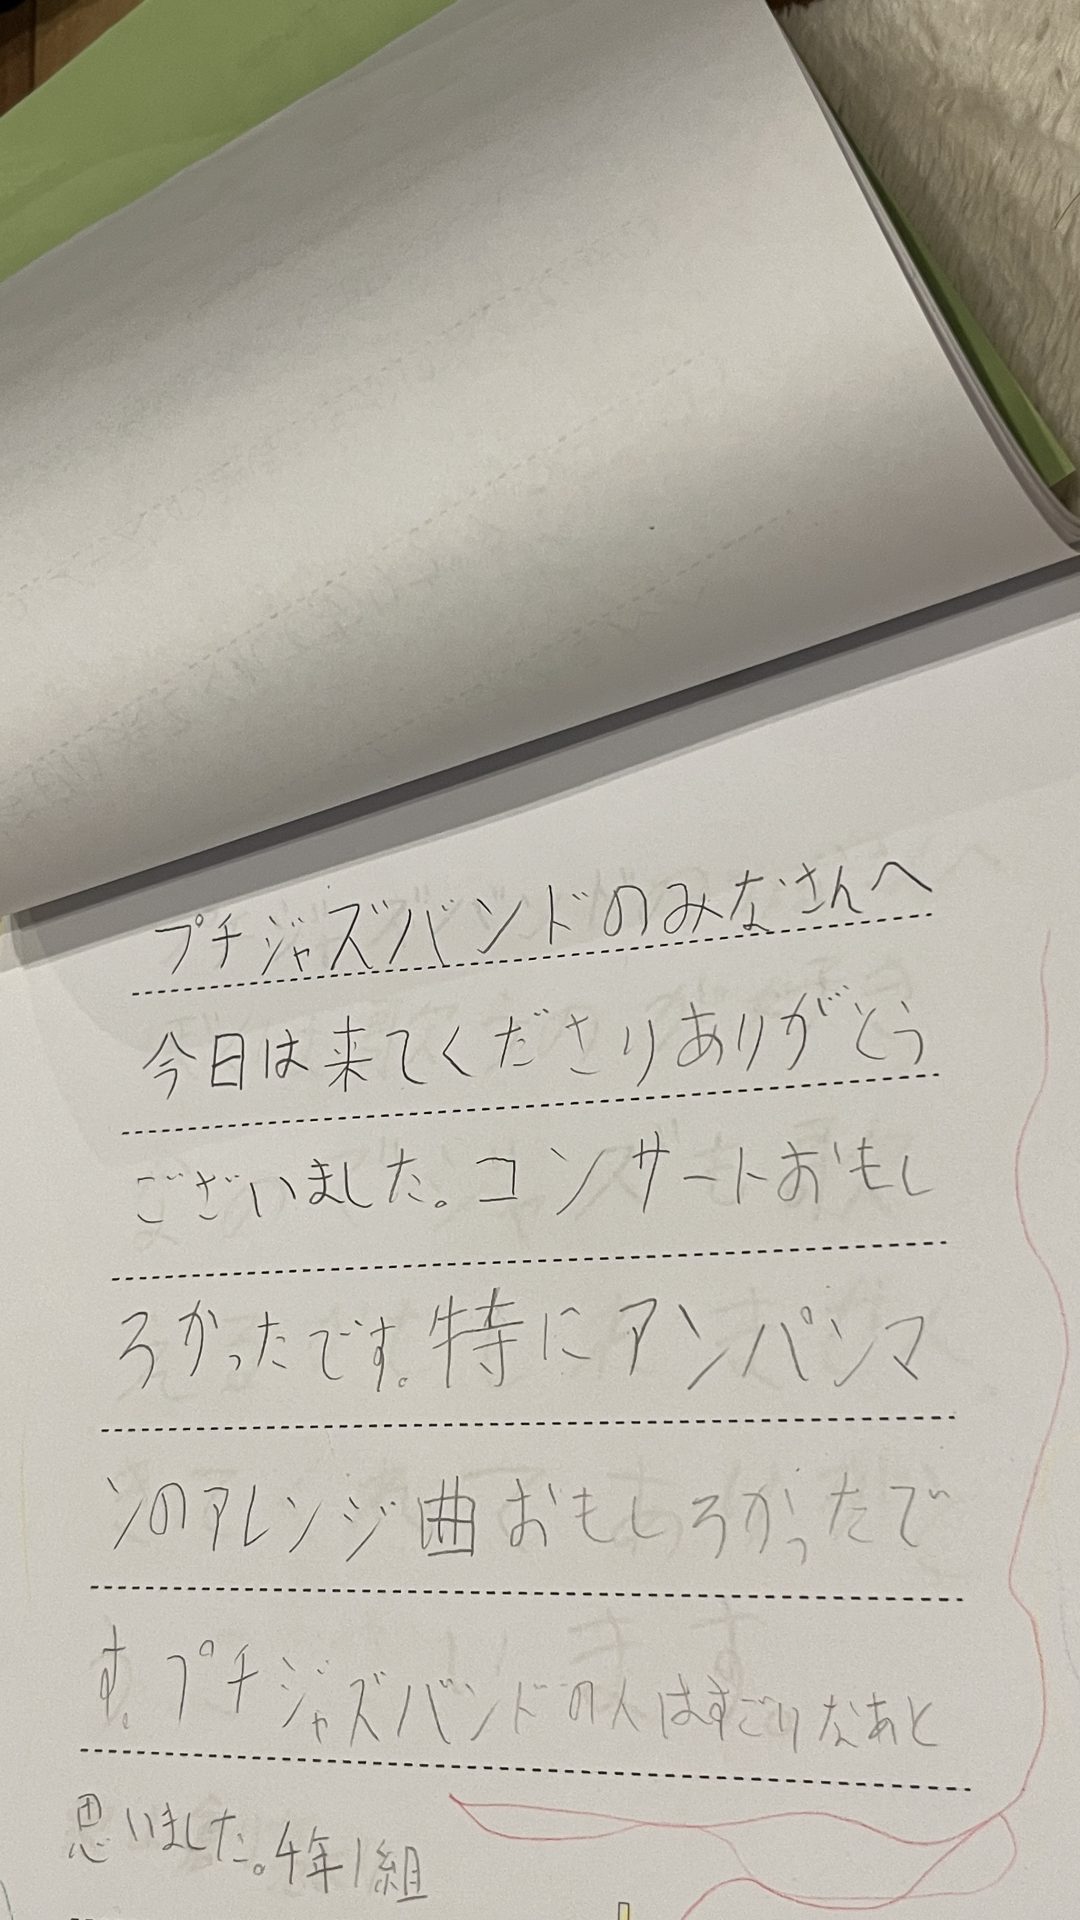 プチジャズバンドのみなさんへ
今日は来てくださりありがとう
ございました。コンサートおもし
ろかったです。特にアンパンマ
ンのアレンジ曲おもしろかったで
す。プチジャズバンドの人はすごいなあと
思いました。4年1組